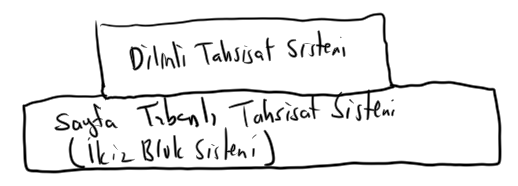 Dilimli Tahsisat Sistemi
Sayfa Tabanlı Tahsisat Sistemi
(İkiz Blok Sistemi)